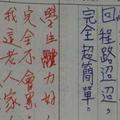 回程路迢迢，
完全超簡單。
學生體力好，
完全不會累，
我這老人家